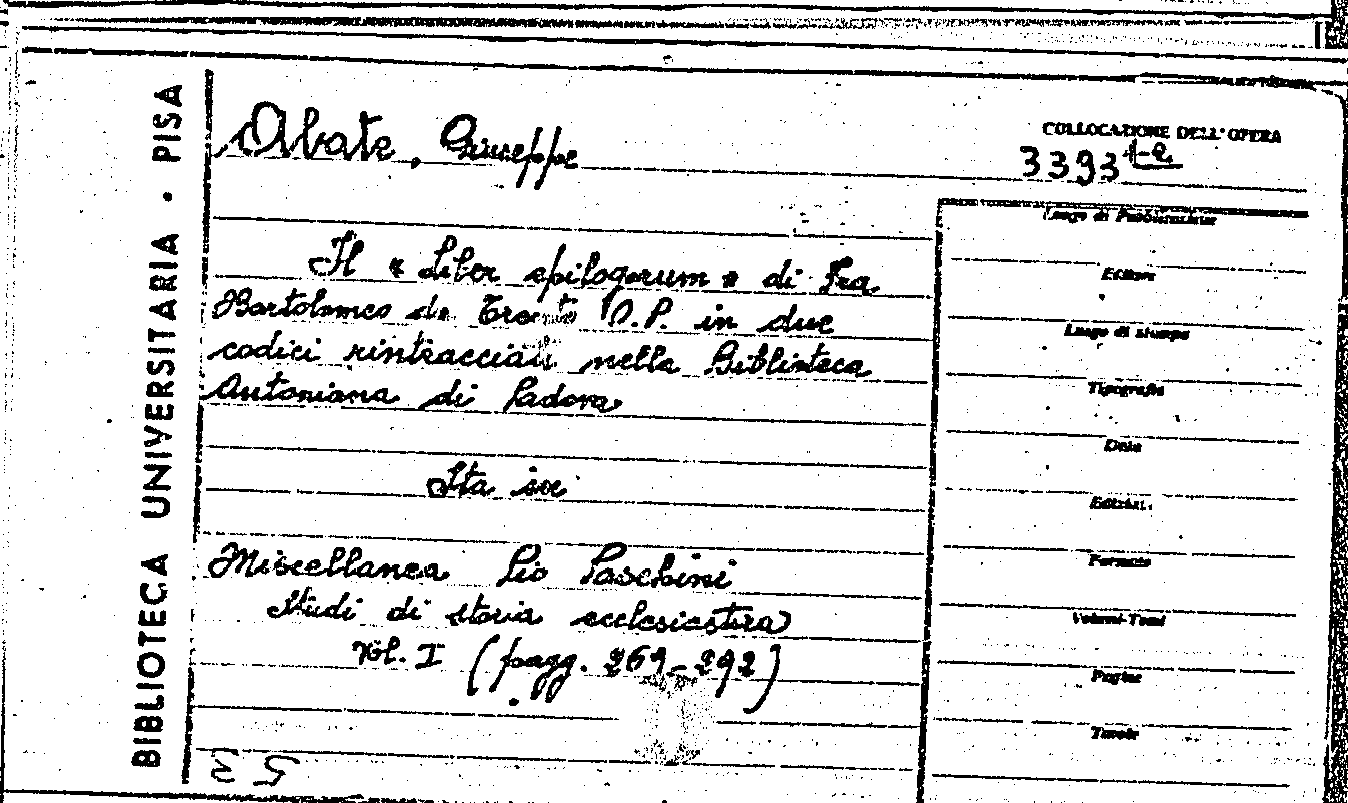 BIBLIOTECA UNIVERSITARIA · PISA
Abate, Giuseppe
COLLOCAZIONE DELL'OPERA
3393
Il « Liber epilogorum » di Fra
Bartolomeo da Trento O.P. in due
codici rintracciati nella Biblioteca
Antoniana di Padova
Sta in:
Miscellanea Pio Paschini
Studi di storia ecclesiastica
Vol. I (pagg. 269-292)
Luogo di Pubblicazione
Editore
Luogo di stampa
Tipografia
Data
Edizion.
Formato
Volumi-Tomi
Pagine
Tavole